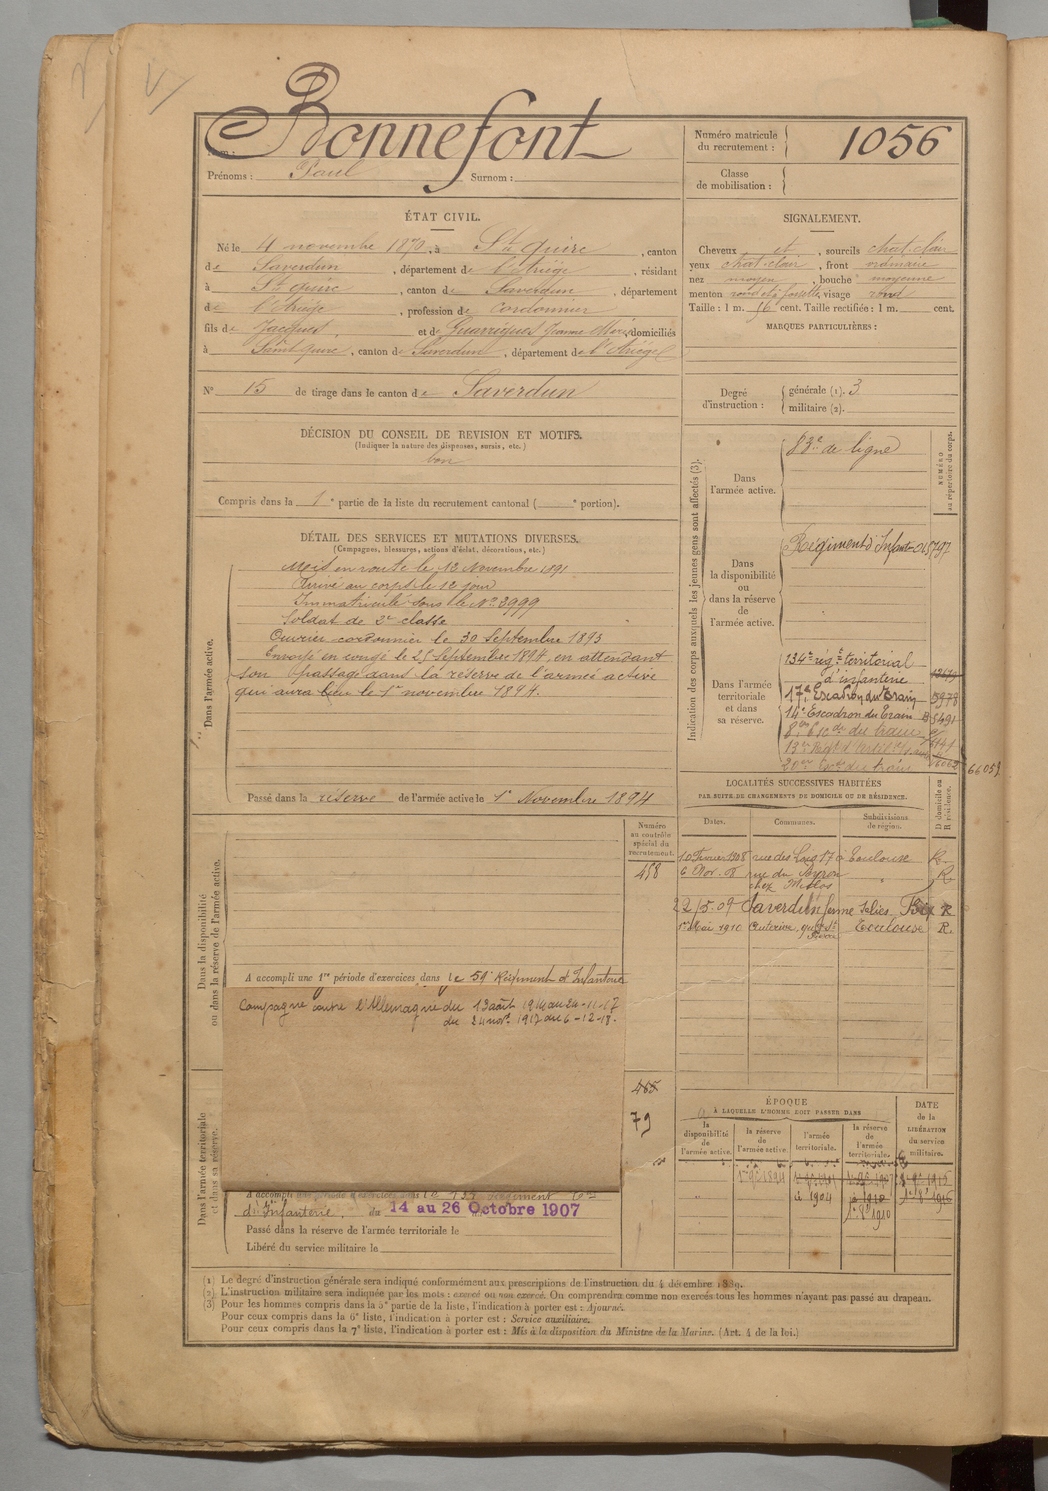 Bonnefont
Nom :
Prénoms : Paul Surnom :
Numéro matricule du recrutement : 1056
Classe de mobilisation :
ÉTAT CIVIL.
Né le 4 novembre 1870, à St Quirc, canton
de Saverdun, département de l'Ariège, résidant
à St Quirc, canton de Saverdun, département
de l'Ariège, profession de Cordonnier
fils de Jacques et de Guarrigues Jeanne Marie domiciliés
à Saint-Quirc, canton de Saverdun, département de l'Ariège
N° 15 de tirage dans le canton de Saverdun
DÉCISION DU CONSEIL DE REVISION ET MOTIFS.
(Indiquer la nature des dispenses, sursis, etc.)
bon
Compris dans la 1e partie de la liste du recrutement cantonal ( e portion).
SIGNALEMENT.
Cheveux et, sourcils chat-clair
yeux chat-clair, front ordinaire
nez moyen, bouche moyenne
menton rond et à fossette, visage rond
Taille : 1 m. 56 cent. Taille rectifiée : 1 m. cent.
MARQUES PARTICULIÈRES :
Degré d'instruction : générale (1). 3
militaire (2).
DÉTAIL DES SERVICES ET MUTATIONS DIVERSES.
(Campagnes, blessures, actions d'éclat, décorations, etc.)
Dans l'armée active.
Mis en route le 12 Novembre 1891
Arrivé au corps le 12 jour
Immatriculé sous le No 3999
Soldat de 2e classe
Ouvrier cordonnier le 30 Septembre 1893
Envoyé en congé le 25 Septembre 1894, en attendant
son passage dans la réserve de l'armée active
qui aura lieu le 1er novembre 1894.
Passé dans la réserve de l'armée active le 1er Novembre 1894
Indication des corps auxquels les jeunes gens sont affectés (3).
NUMÉRO au répertoire du corps.
Dans l'armée active.
83e de ligne
Dans la disponibilité ou dans la réserve de l'armée active.
Régiment d'Infant 015797
Dans l'armée territoriale et dans sa réserve.
134e rég. territorial
d'infanterie
17e Escadron du Train 5978
14e Escadron du Train
du train
20e
66059
LOCALITÉS SUCCESSIVES HABITÉES
PAR SUITE DE CHANGEMENTS DE DOMICILE OU DE RÉSIDENCE.
D domicile ou R résidence.
Dates. Communes. Subdivisions de région.
10 Fevrier 1908 rue des 17 Toulouse R
6 Nov. 08 rue du R
chez
22/5.09 Saverdun ferme R
1er Mai 1910 Auterive, Toulouse R.
Numéro au contrôle spécial du recrutement.
458
Dans la disponibilité ou dans la réserve de l'armée active.
A accompli une 1re période d'exercices dans le 59e Régiment d'Infanterie
Campagne contre l'Allemagne du 13 août 1914 au 24-11-17
du 24 nov. 1917 au 6-12-18.
465
79
Dans l'armée territoriale et dans sa réserve.
A accompli une période d'exercices dans le 133e régiment
d'Infanterie. du 14 au 26 Octobre 1907
Passé dans la réserve de l'armée territoriale le
Libéré du service militaire le
ÉPOQUE
À LAQUELLE L'HOMME DOIT PASSER DANS
DATE de la LIBÉRATION du service militaire.
la disponibilité de l'armée active. la réserve de l'armée active. l'armée territoriale. la réserve de l'armée territoriale.
1894
1904 1910
1910
(1) Le degré d'instruction générale sera indiqué conformément aux prescriptions de l'instruction du 4 décembre 1889.
(2) L'instruction militaire sera indiquée par les mots : exercé ou non exercé. On comprendra comme non exercés tous les hommes n'ayant pas passé au drapeau.
(3) Pour les hommes compris dans la 5e partie de la liste, l'indication à porter est : Ajourné.
Pour ceux compris dans la 6e liste, l'indication à porter est : Service auxiliaire.
Pour ceux compris dans la 7e liste, l'indication à porter est : Mis à la disposition du Ministre de la Marine. (Art. 4 de la loi.)